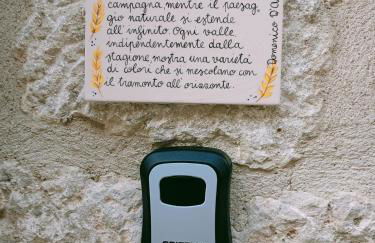 campagna, mentre il paesag
gio naturale si estende
all'infinito. Ogni valle,
indipendentemente dalla
stagione, mostra una varietà
di colori che si mescolano con
il tramonto all'orizzonte.
Domenico D'A